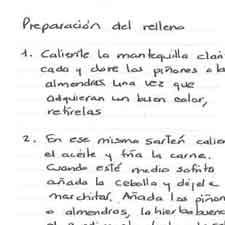 Preparación del relleno
1. Caliente la mantequilla clari
cada y dore los piñones o la
almendras. Una vez que
adquieran un buen color,
retírelas
2. En ese mismo sartén calie
el aceite y fría la carne.
Cuando esté medio sofrita
añada la cebolla y déjela
marchitar. Añada los piñon
o almendras, la hierbabuena